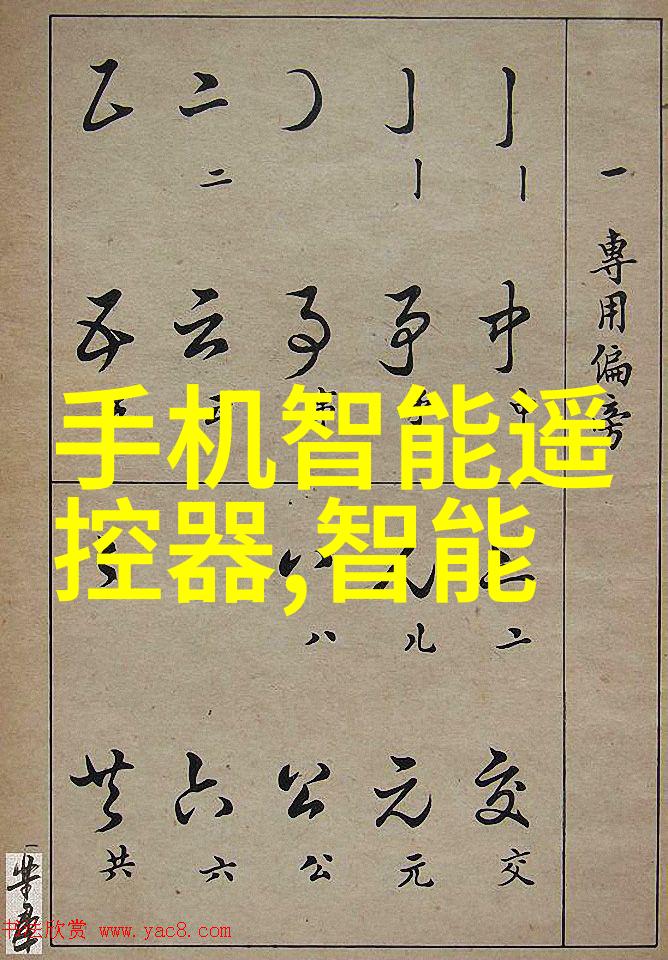 一 專用偏旁
丨 丨 二
二
中
爭
事
云
五
手机智能遥
控器,智能
二 儿 八
交 元 公 六 共
交 元 公 六 共
书法欣赏 www.yac8.com